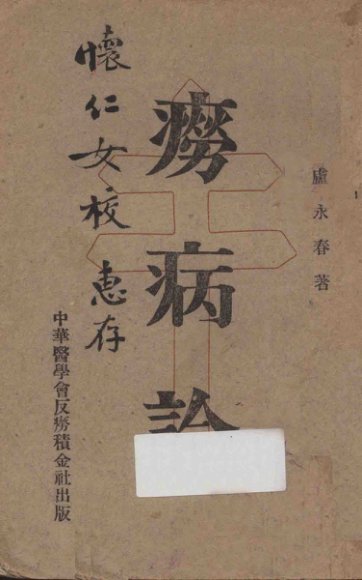 盧永春著
癆病論
懷仁女校惠存
中華醫學會反癆積金社出版